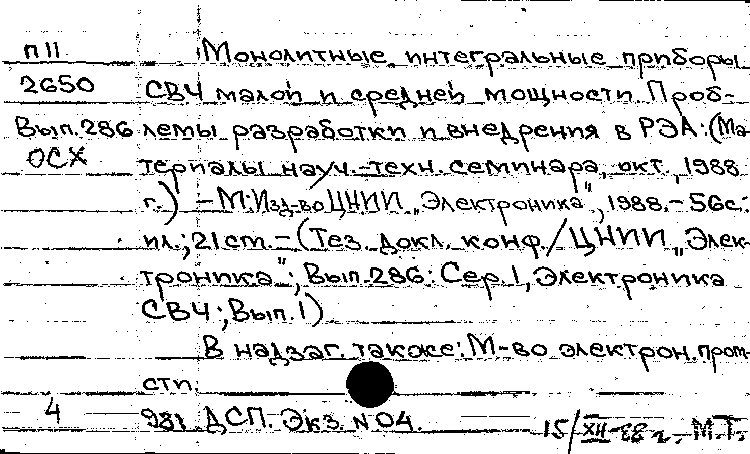 П11 Монолитные интегральные приборы
2650 СВЧ малой и средней мощности. Проб-
Вып. 286 лемы разработки и внедрения в РЭА: (Ма-
ОСХ териалы науч.-техн. семинара, окт., 1988
г.) - М.: Изд-во ЦНИИ „Электроника", 1988.- 56с.:
ил.; 21 cm. - (Тез. докл. конф. / ЦНИИ „Элек-
троника"; Вып. 286: Сер. 1, Электроника
СВЧ; Вып. 1)
В надзаг. также: М-во электрон. пром-
сти.
4 ДСП. Экз. N 04. 15/XII-88 г. М.Т.